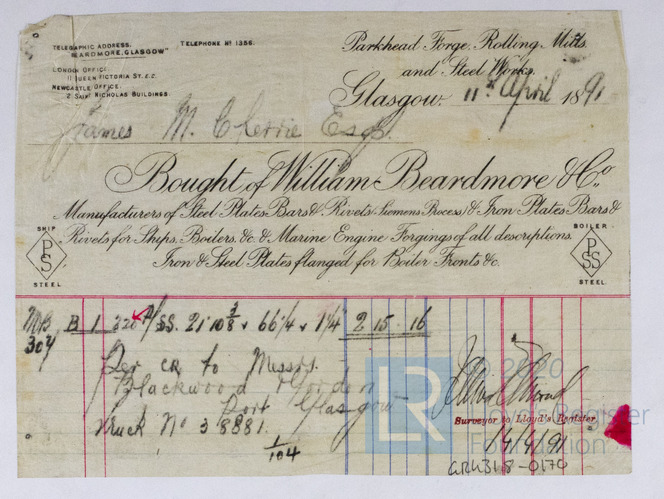 TELEGRAPHIC ADDRESS.
"BEARDMORE, GLASGOW"
TELEPHONE Nº 1356.
LONDON OFFICE.
11 QUEEN VICTORIA ST. E.C.
NEWCASTLE OFFICE.
2 SAINT NICHOLAS BUILDINGS.
Parkhead Forge, Rolling Mills
and Steel Works.
Glasgow. 11th April 1891
James M. Cherrie Esq.
Bought of William Beardmore & Co.
Manufacturers of Steel Plates Bars & Rivets (Siemens Process) & Iron Plates Bars &
Rivets for Ships, Boilers, &c. & Marine Engine Forgings of all descriptions.
Iron & Steel Plates flanged for Boiler Fronts &c.
SHIP
PS
S
STEEL.
BOILER
P
SS
STEEL.
B 1 320 SS. 21·10 3/8 × 66 1/4 × 1 1/4 2 15 16
307
Per CR to Messrs.
Blackwood & Gordon
Port Glasgow
Truck No 38881
1/104
Surveyor to Lloyd's Register.
14/4/91
2020
LR
Lloyd's Register
Foundation